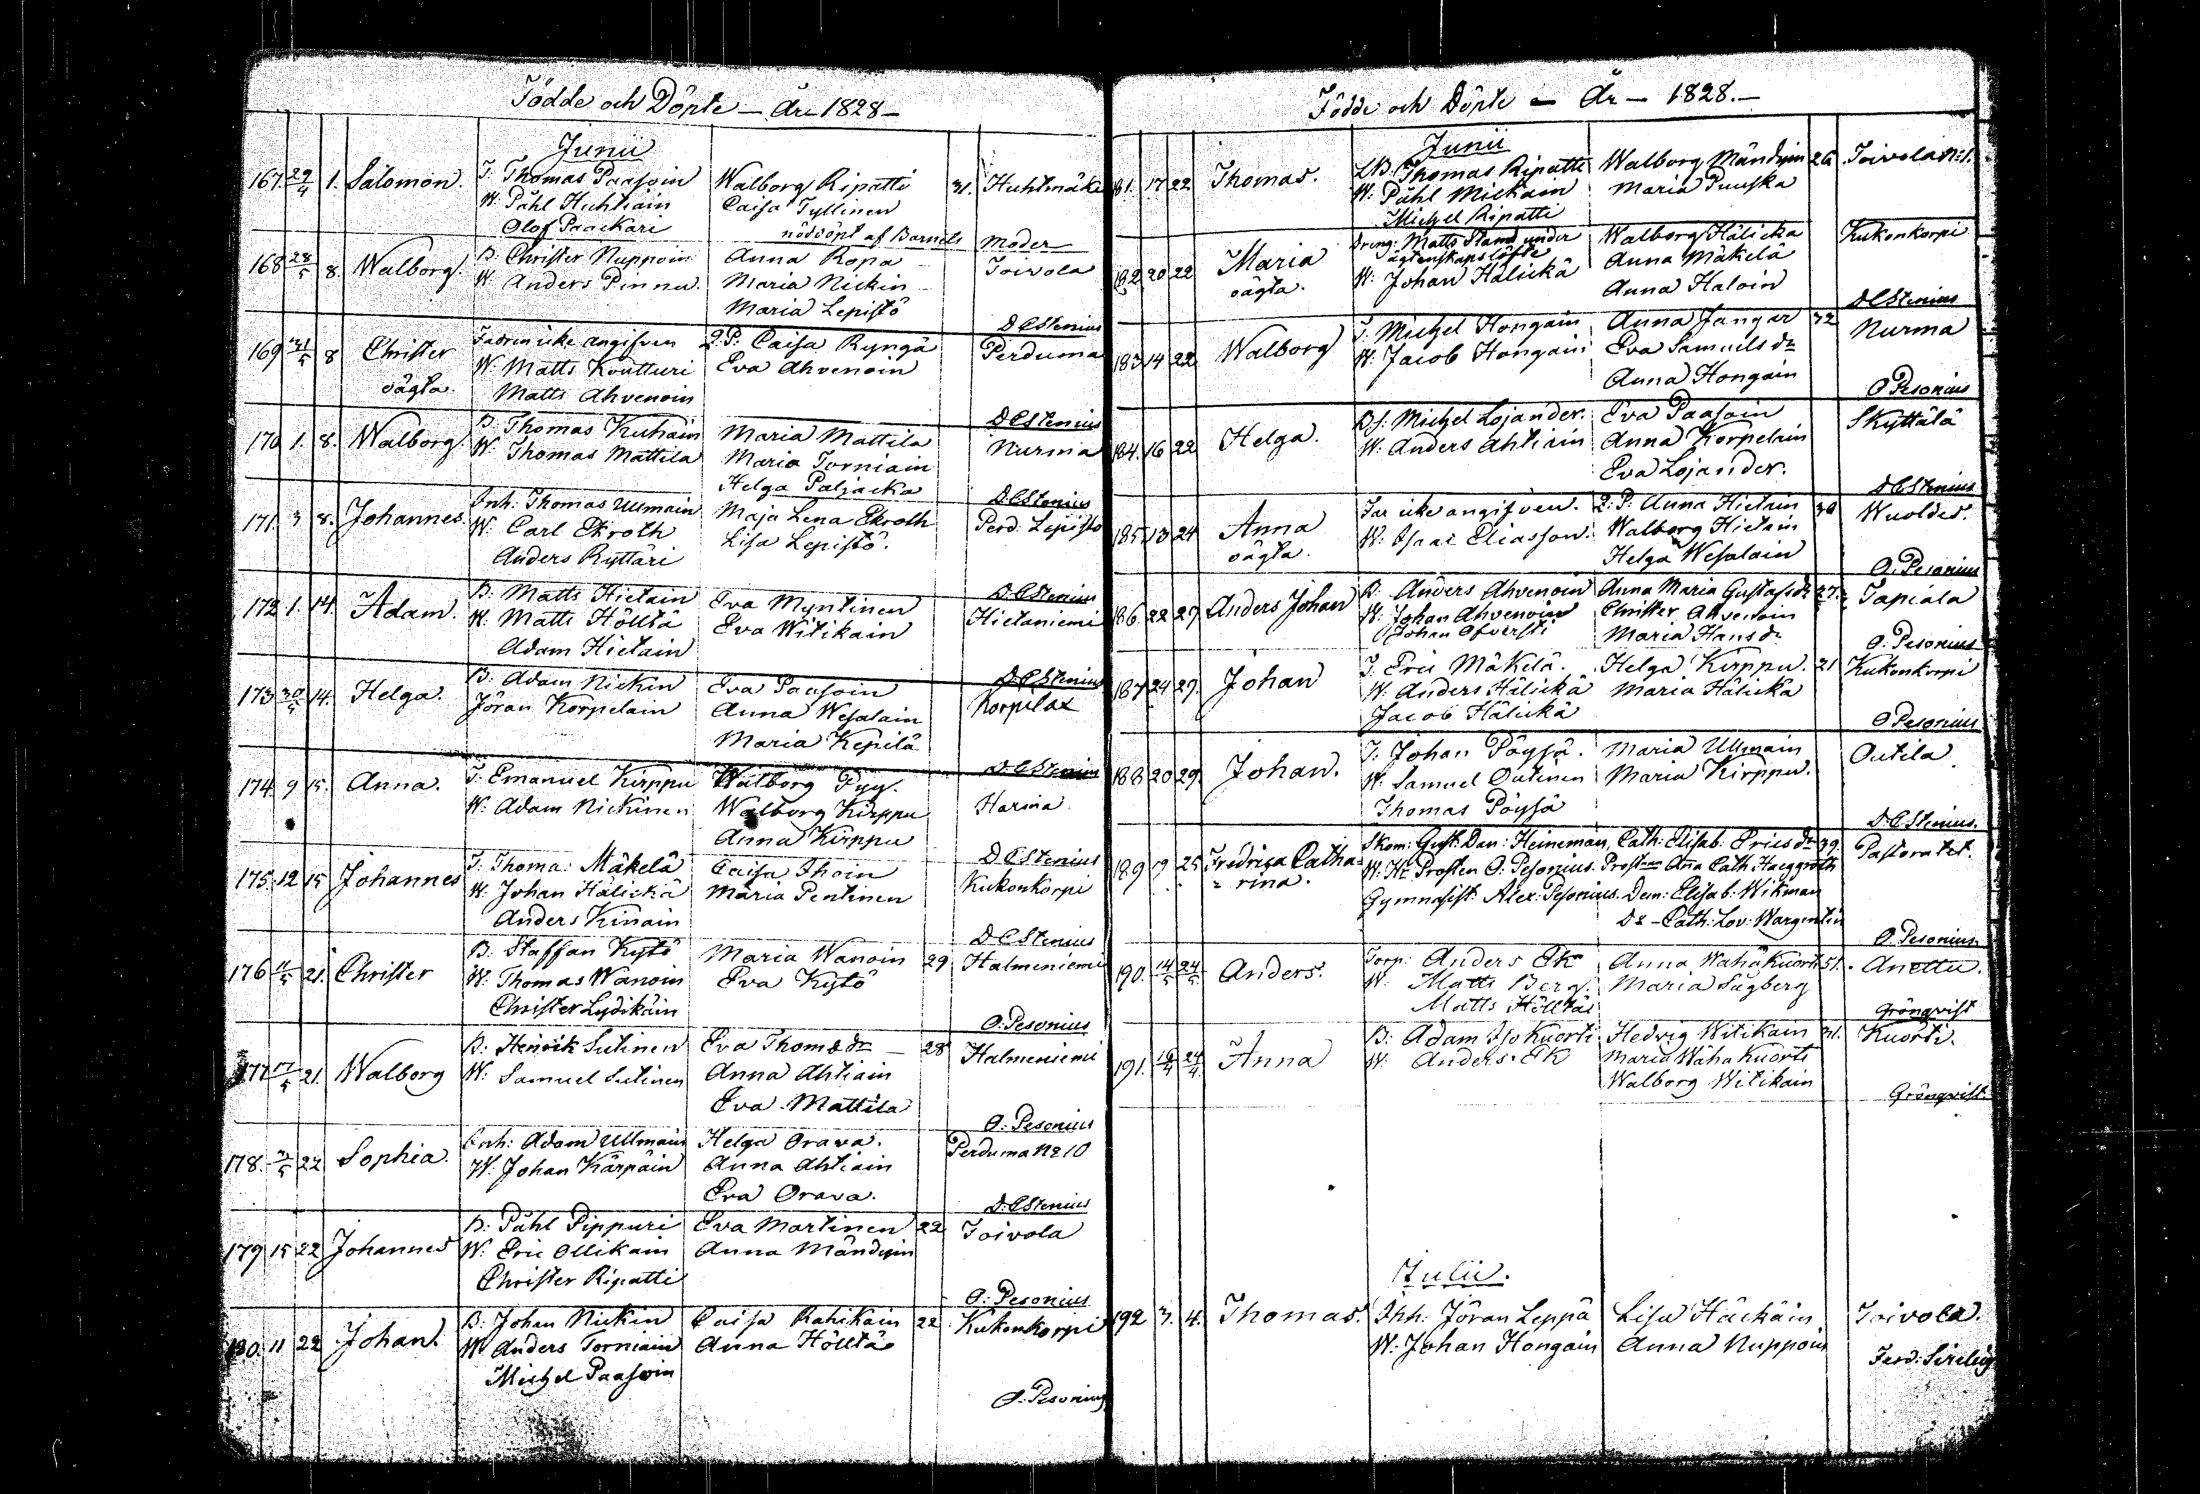 Födde och Döpte – År 1828 –
Junii
167. 29/4 1. Salomon. T. Thomas Paasoin Walborg Ripatti 31. Huhtmäki
W. Påhl Huhtiain Caisa Tyllinen
Olof Paackari nöddöpt af Barnets Moder
168 28/5 8. Walborg. B. Christer Nuppoin Anna Ropa Toivola
W. Anders Pinnu. Maria Nickin
Maria Lepistö D C Stenius
169 31/5 8 Christer Fadren icke angifven Q. P. Caisa Ryngä Perduma
oägta. W. Matts Koutturi Eva Ahvenoin
Matts Ahvenoin D C Stenius
170 1. 8. Walborg. B. Thomas Kuhain Maria Mattila Nurma
W. Thomas Mattila Maria Torniain
Helga Paljacka D C Stenius
171. 3 8. Johannes. Inh. Thomas Ullmain Maja Lena Ekroth Perd. Lepistö
W. Carl Ekroth Lisa Lepistö.
Anders Ryttäri D. C Stenius
172 1. 14. Adam. B. Matts Hietain Eva Myntinen Hietaniemi
W. Matts Hölttä Eva Witikain
Adam Hietain D. C Stenius
173 30/5 14. Helga. B. Adam Nickin Eva Paasoin Korpilax
Jöran Korpelain Anna Wesalain
Maria Kepilä D. C Stenius
174. 9 15. Anna. T. Emanuel Kirppu Walborg Pyy. Harina
W. Adam Nickinen Walborg Kirppu
Anna Kirppu D C Stenius
175. 12 15 Johannes T. Thoma: Mäkelä Caisa Ihoin Kukonkorpi
W. Johan Hälickä Maria Pentinen
Anders Kinain D C Stenius
176 21. Christer B. Staffan Kytö Maria Wanoin 29 Halmeniemi
W. Thomas Wanoin Eva Kytö
Christer Lydikäin O. Pesonius
177 17/5 21. Walborg B. Henrik Sutinen Eva Thomædr – 28 Halmeniemi
W: Samuel Sutinen Anna Ahtiain
Eva Mattila O. Pesonius
178. 22 Sophia. Inh: Adam Ullmain Helga Orava. Perduma No 10
W. Johan Kärpäin Anna Ahtiain
Eva Orava. D. C Stenius
179 15 22 Johannes B. Påhl Pippuri Eva Martinen 22 Toivola
W. Eric Ollikain Anna Mändyin
Christer Ripatti O. Pesonius
180. 11 22 Johan. B. Johan Nickin Caisa Rahikain 22 Kukonkorpi
W Anders Torniain Anna Hölttä
Michel Paasoin O. Pesonius
Födde och Döpte – År – 1828. –
Junii
181. 17 22 Thomas. Thomas Ripatti Walborg Mändyin 26 Toivola No 1.
W. Påhl Mickain Maria Puuska
Michel Ripatti
182 20 22 Maria Dreng: Matts Stamd under Walborg Hälicka Kukonkorpi
oägta. ägtenskapslöfte Anna Mäkelä
W. Johan Hälickä Anna Haloin D C Stenius
183 14 22 Walborg T. Michel Hongain Anna Jangar 32 Nurma
W. Jacob Hongain Eva Samuelsdr
Anna Hongain O Pesonius
184. 16 22 Helga. Bs. Michel Lojander. Eva Paasoin Skyttälä
W. Anders Ahtiain Anna Korpelain
Eva Lojander. D C Stenius
185. 13 24 Anna Far icke angifven. Q. P. Anna Hietain 30 Wuoldes.
oägta. W. Isaac Eliasson. Walborg Hietain
Helga Wesalain O. Pesonius
186. 22 27 Anders Johan B. Anders Ahvenoin Anna Maria Gustafsdr 27. Tapiala
W. Johan Ahvenoin Christer Ahvenoin
Johan Öfversti Maria Hansdr O. Pesonius
187 24 29. Johan T. Eric Mäkelä. Helga Kirppu. 21 Kukonkorpi
W. Anders Hälickä Maria Hälicka
Jacob Hälickä O Pesonius
188 20 29. Johan. T. Johan Pöysä. Maria Ullmain Outila
W. Samuel Outinen Maria Kirppu.
Thomas Pöysä D. C Stenius.
189 19 25 Fredrica Catha- Skom: Gust: Dan: Heineman, Cath: Elisab: Ericsdr 39. Pastoratet.
rina. W. Hr Prosten O. Pesonius. Prostan Ana Cath. Haeggroth
Gymnasist: Alex: Pesonius. Dem: Elisab: Wikman
Do – Cath: Lov: Wargentin O. Pesonius.
190. 14/5 24/5 Anders. Torp: Anders Ek Anna Wahäkuorti 31. Anettu.
W. Matts Berg. Maria Sägberg
Matts Hölttäi Grönqvist
191. 24/4 Anna B. Adam Isokuorti Hedvig Witikain 31. Kuorti.
W. Anders Ek Maria Wahakuorti
Walborg Witikain Grönqvist
Julii.
192 3. 4. Thomas. Inh. Jöran Leppä Lisa Häckäin Toivola.
W. Johan Hongain Anna Nuppoin Ferd: Sirelius